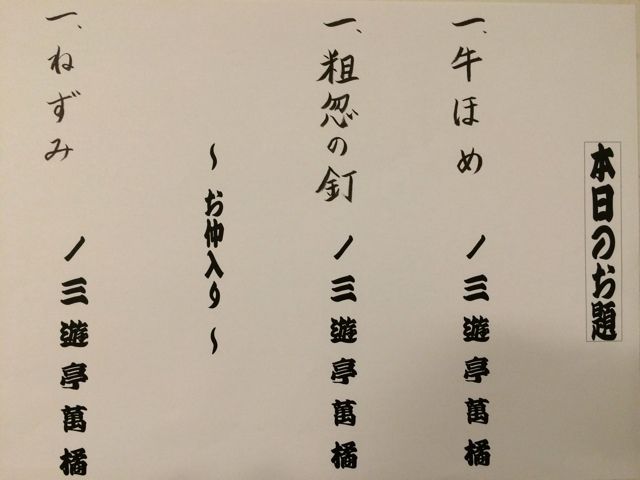 本日のお題
一、牛ほめ ／三遊亭萬橘
一、粗忽の釘 ／三遊亭萬橘
～お仲入り～
一、ねずみ ／三遊亭萬橘